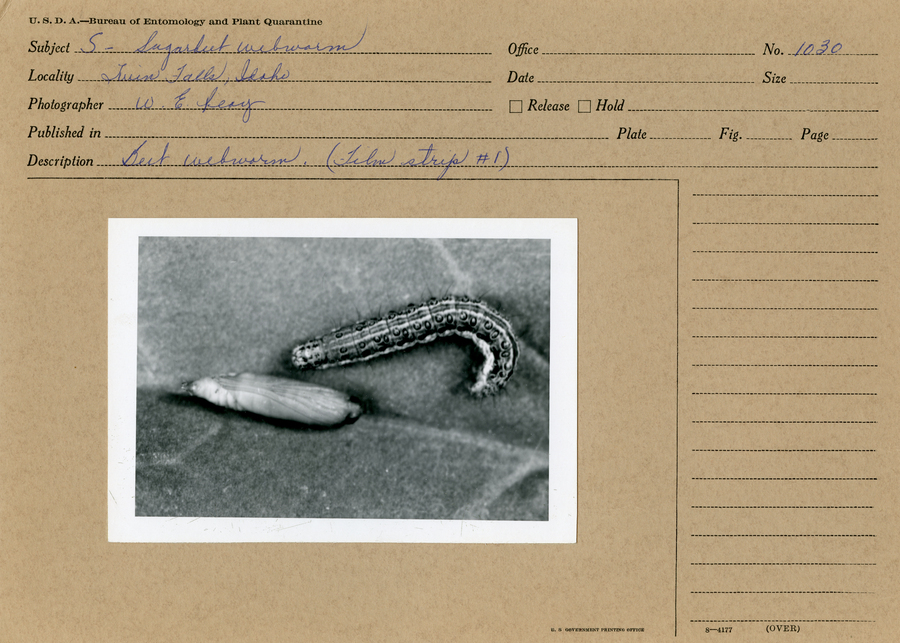 U. S. D. A.—Bureau of Entomology and Plant Quarantine
Subject S- Sugarbeet webworm Office No. 1030
Locality Twin Falls, Idaho Date Size
Photographer W. E. Release Hold
Published in Plate Fig. Page
Description Beet webworm. (Film strip #1)
U. S GOVERNMENT PRINTING OFFICE 8—4177 (OVER)